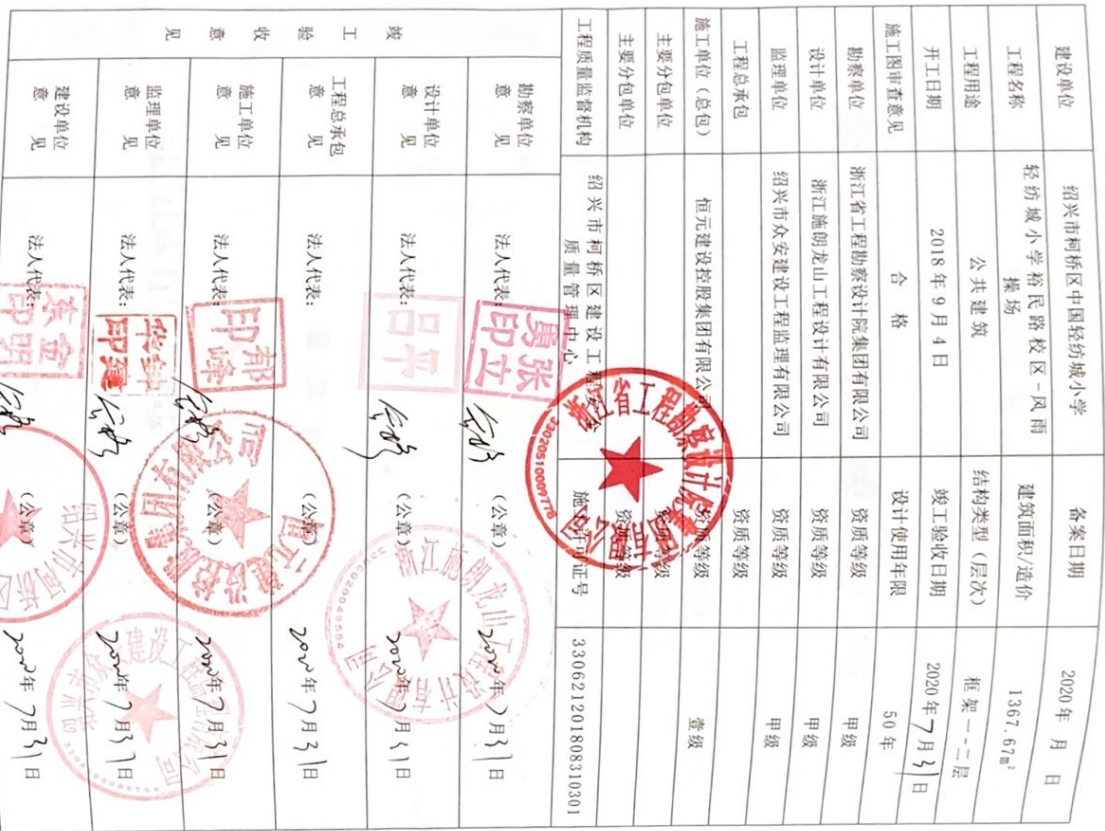 建设单位 绍兴市柯桥区中国轻纺城小学 备案日期 2020 年 月 日
工程名称 轻纺城小学裕民路校区-风雨
操场 建筑面积/造价 1367.67m²
工程用途 公共建筑 结构类型(层次) 框架一-二层
开工日期 2018 年 9 月 4 日 竣工验收日期 2020 年 7 月 31 日
施工图审查意见 合 格 设计使用年限 50 年
勘察单位 浙江省工程勘察设计院集团有限公司 资质等级 甲级
设计单位 浙江施朗龙山工程设计有限公司 资质等级 甲级
监理单位 绍兴市众安建设工程监理有限公司 资质等级 甲级
工程总承包 资质等级
施工单位(总包) 恒元建设控股集团有限公司 资质等级 壹级
主要分包单位 资质等级
主要分包单位 资质等级
工程质量监督机构 绍兴市柯桥区建设工程
质量管理中心 施工许可证号 330621201808310301
竣工验收意见
勘察单位
意 见 法人代表: (公章) 2020年7月31日
设计单位
意 见 法人代表: (公章) 2020年7月31日
工程总承包
意 见 法人代表: (公章) 2020年7月31日
施工单位
意 见 法人代表: (公章) 2020年7月31日
监理单位
意 见 法人代表: (公章) 2020年7月31日
建设单位
意 见 法人代表: (公章) 2020年7月31日
浙江省工程勘察设计院集团有限公司
33020510009778
张立勇印
吕平
浙江施朗龙山工程设计有限公司
恒元建设控股集团有限公司